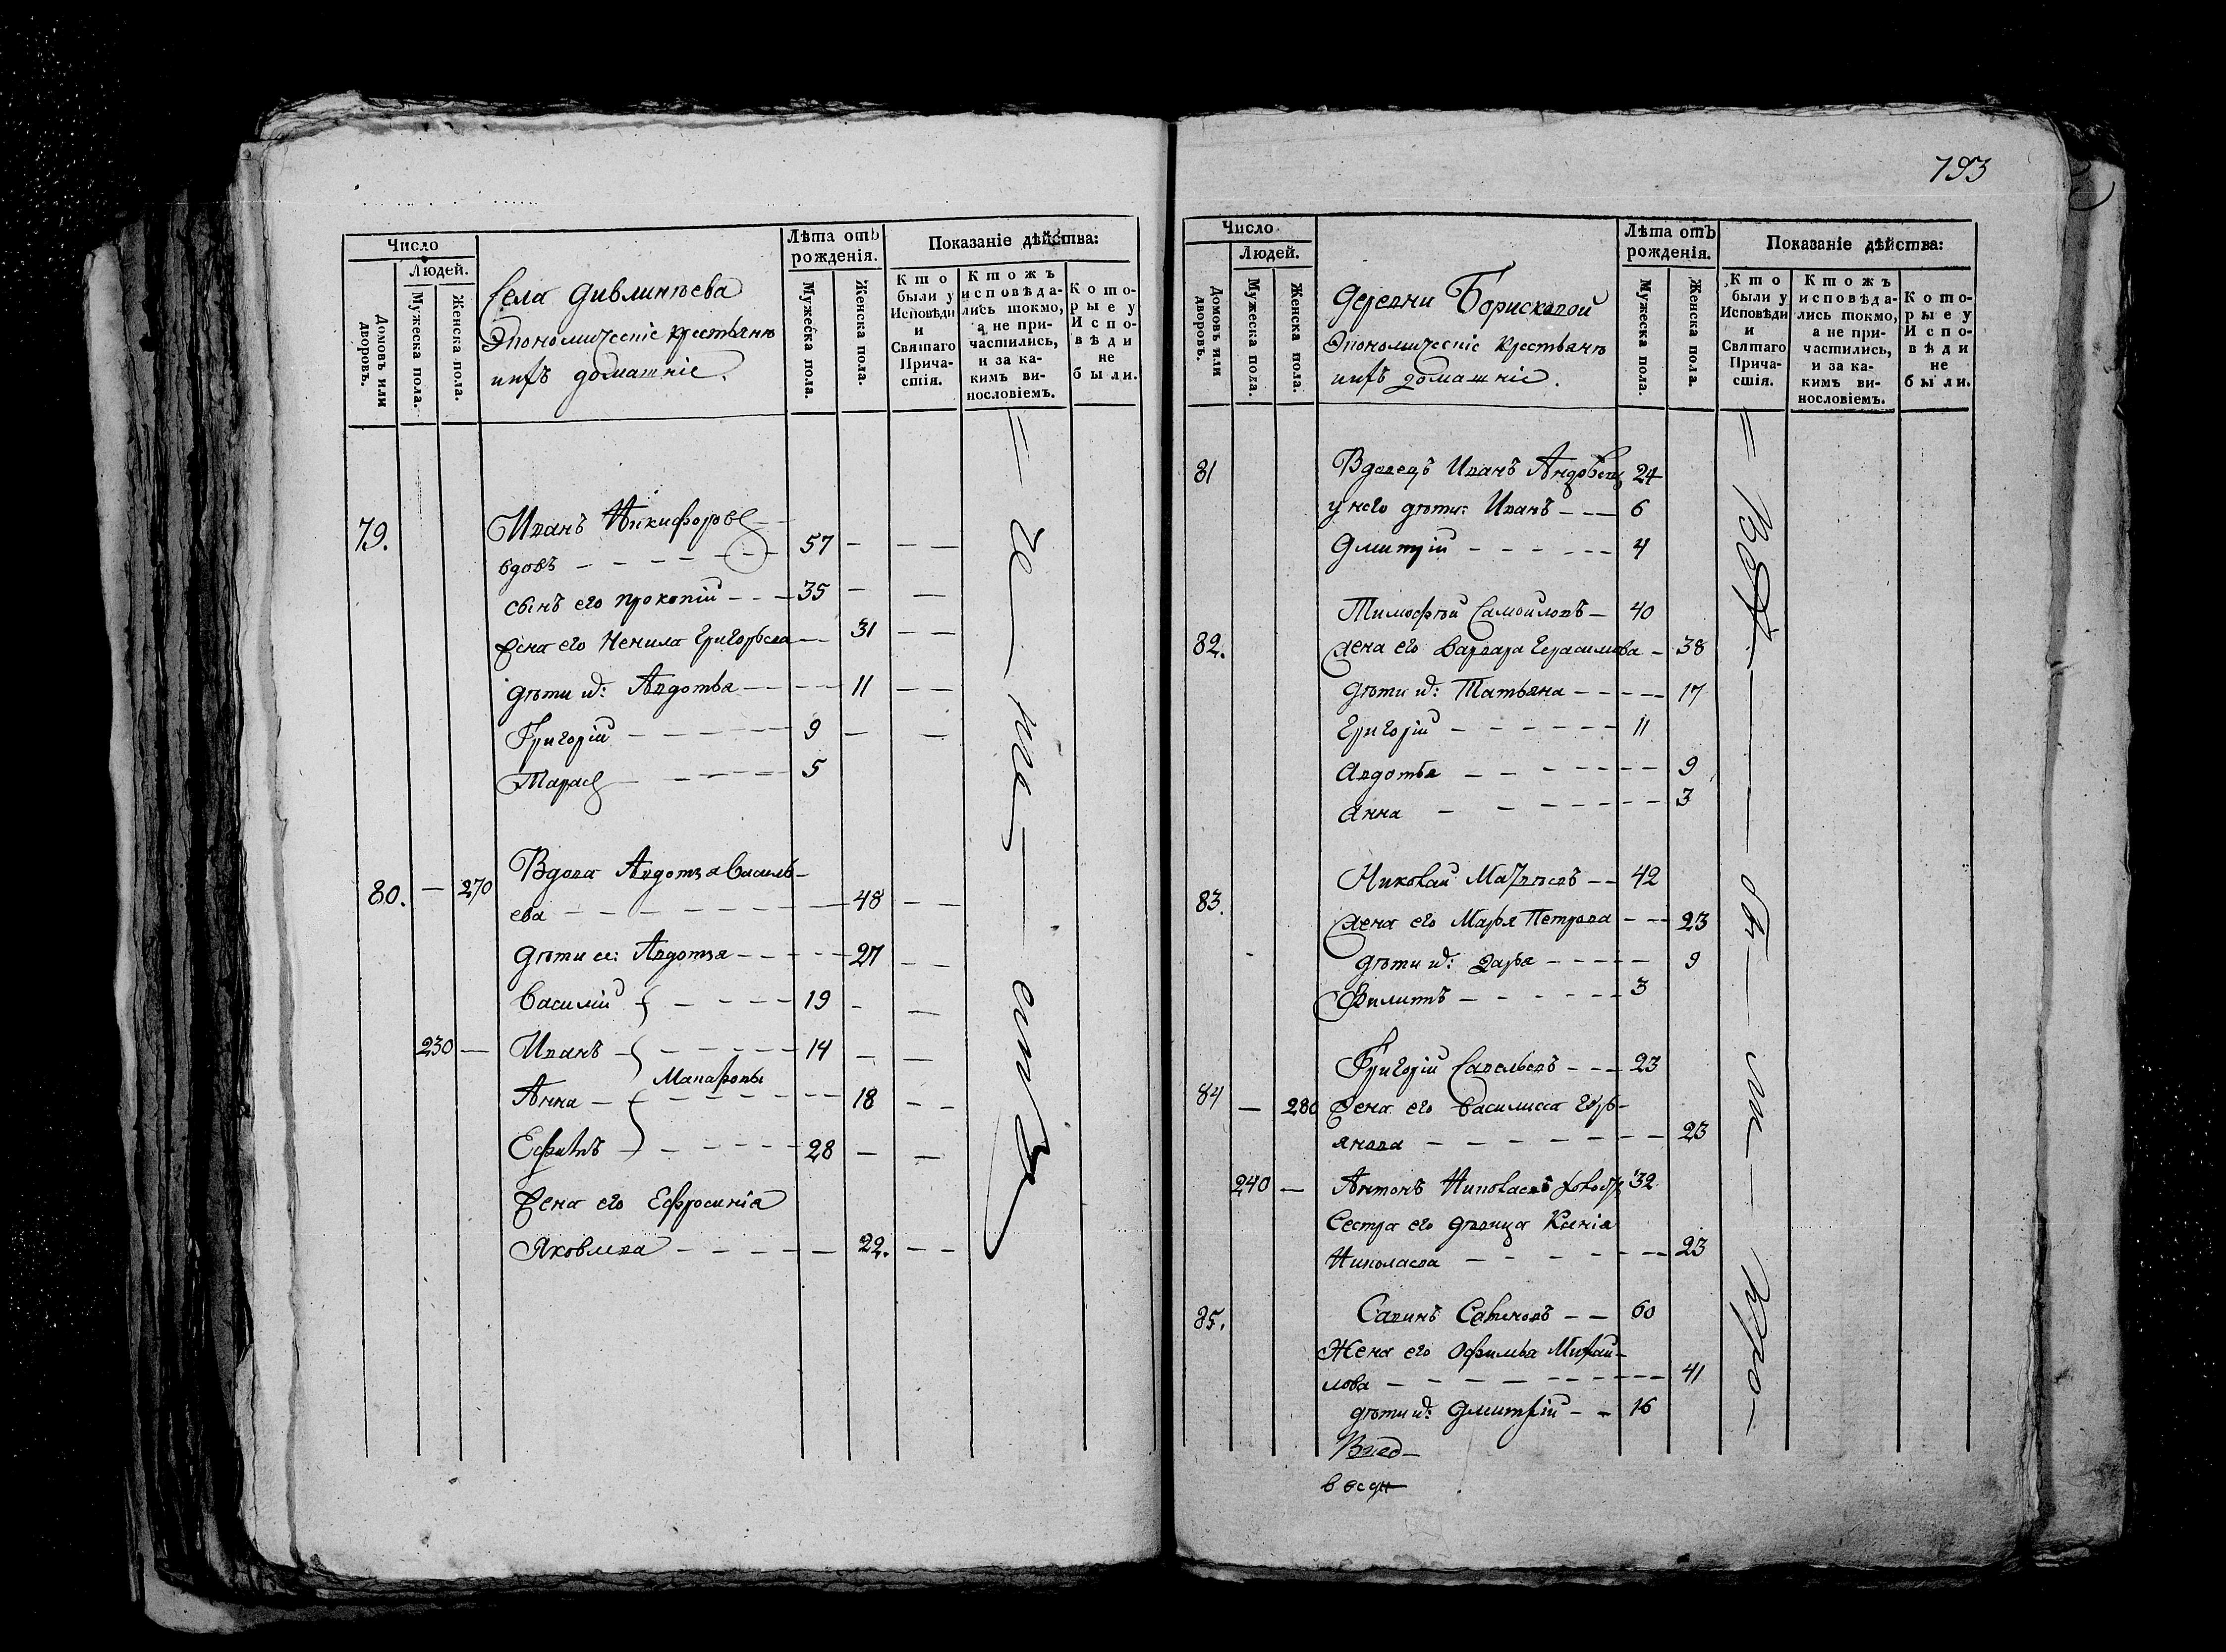 Число
Людей.
Домовъ или дворовъ.
Мужеска пола.
Женска пола.
Села Дивлинѣева
Экономическіе крестьяне
и ихъ домашніе.
Лѣта отъ рожденія.
Мужеска пола.
Женска пола.
Показаніе дѣйства:
Кто были у Исповѣди и Святаго Причастія.
Ктожъ исповѣдались токмо, а не причастились, и за какимъ винословіемъ.
Которые у Исповѣди не были.
79. Иванъ Никифоровъ
вдовъ 57
сынъ его Прокопій 35
жена его Ненила Григорьева 31
дѣти их: Авдотья 11
Григорій 9
Тарасъ 5
80. — 270 Вдова Авдотья Василь-
ева 48
дѣти ее: Авдотья 27
Василій 19
230 — Иванъ 14
Макаровы
Анна 18
Ефимъ 28
жена его Ефросинія
Яковлева 22.
793
Число
Людей.
Домовъ или дворовъ.
Мужеска пола.
Женска пола.
Деревни Борисковой
Экономическіе крестьяне
и ихъ домашніе.
Лѣта отъ рожденія.
Мужеска пола.
Женска пола.
Показаніе дѣйства:
Кто были у Исповѣди и Святаго Причастія.
Ктожъ исповѣдались токмо, а не причастились, и за какимъ винословіемъ.
Которые у Исповѣди не были.
81 Вдовецъ Иванъ 24
у него дѣти: Иванъ 6
Дмитрій 4
Тимофѣй Самойловъ 40
82. жена его Варвара Герасимова 38
дѣти их: Татьяна 17
Григорій 11
Авдотья 9
Анна 3
Николай Матвѣевъ 42
83. жена его Марья Петрова 23
дѣти их: Дарья 9
Филиппъ 3
Григорій Савельевъ 23
84 — 280 жена его Василиса Емель-
янова 23
240 — Антонъ Николаевъ холостъ 32
Сестра его дѣвица Ксенія
Николаева 23
85. Савинъ Семеновъ 60
Жена его Офимья Михай-
лова 41
дѣти их: Дмитрій 16